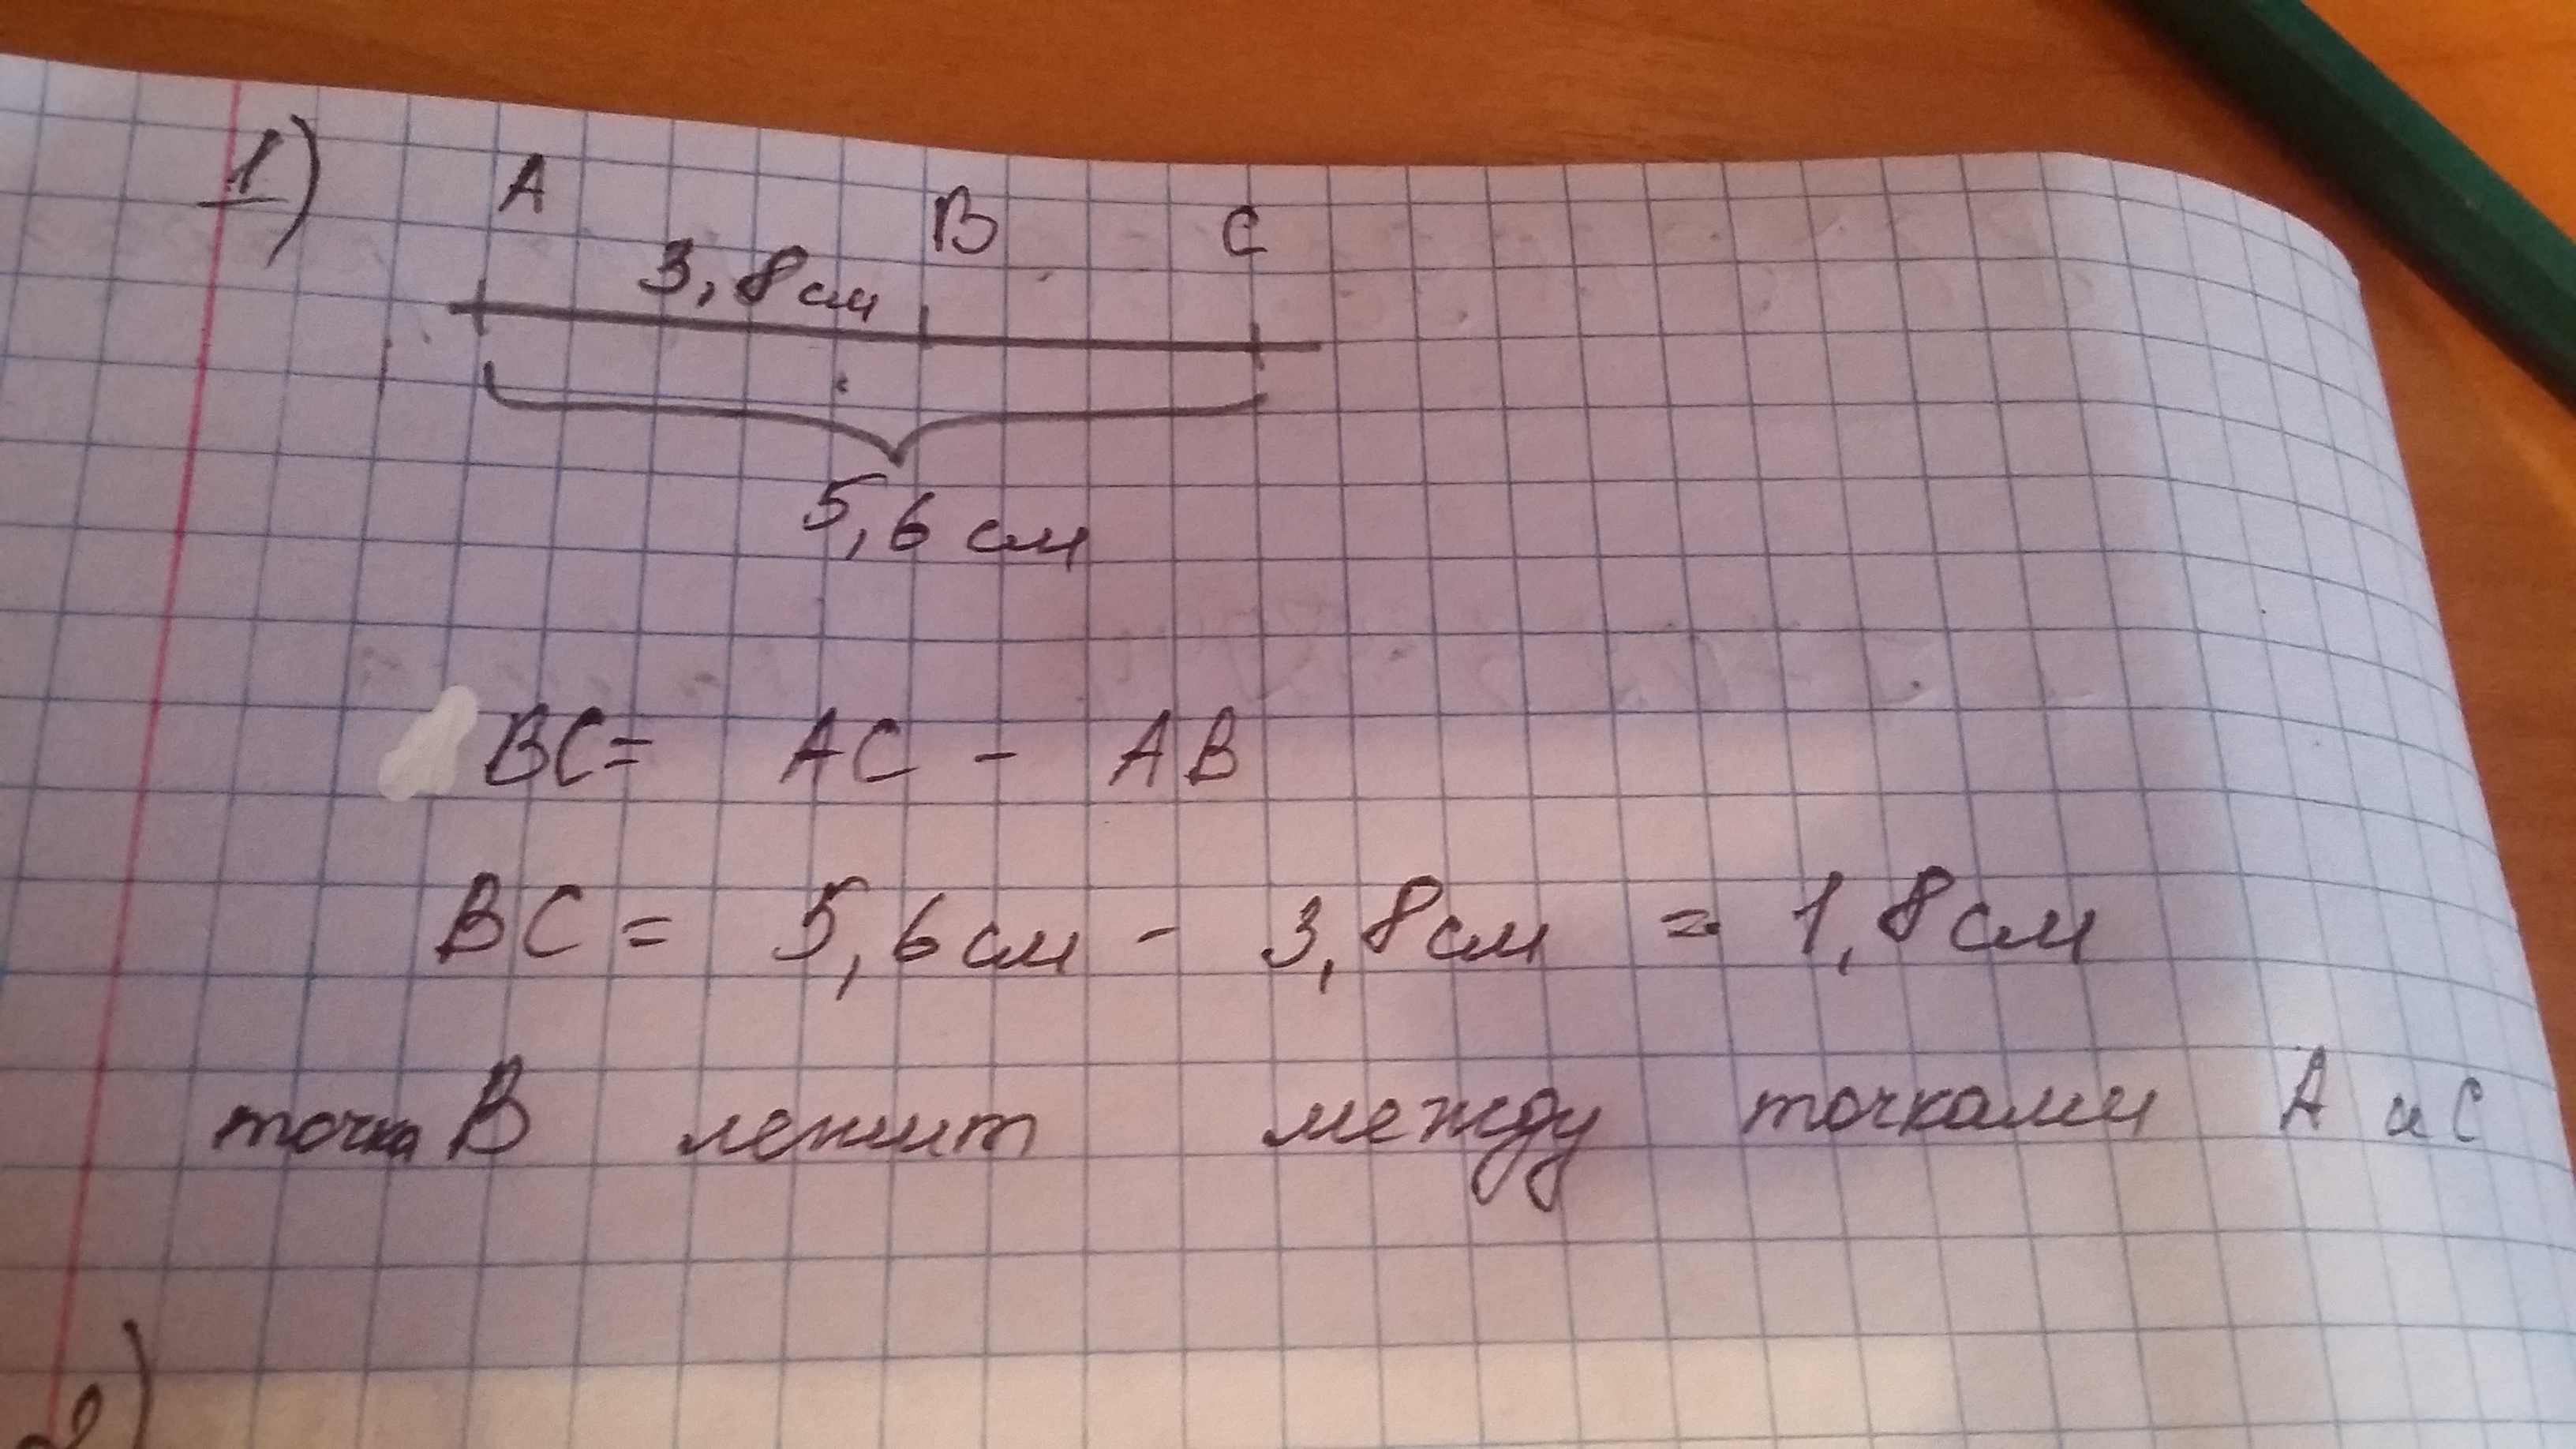 1)
A B C
3,8см
5,6 см
BC= AC - AB
BC = 5,6см - 3,8см = 1,8см
точка B лежит между точками A и C
2)